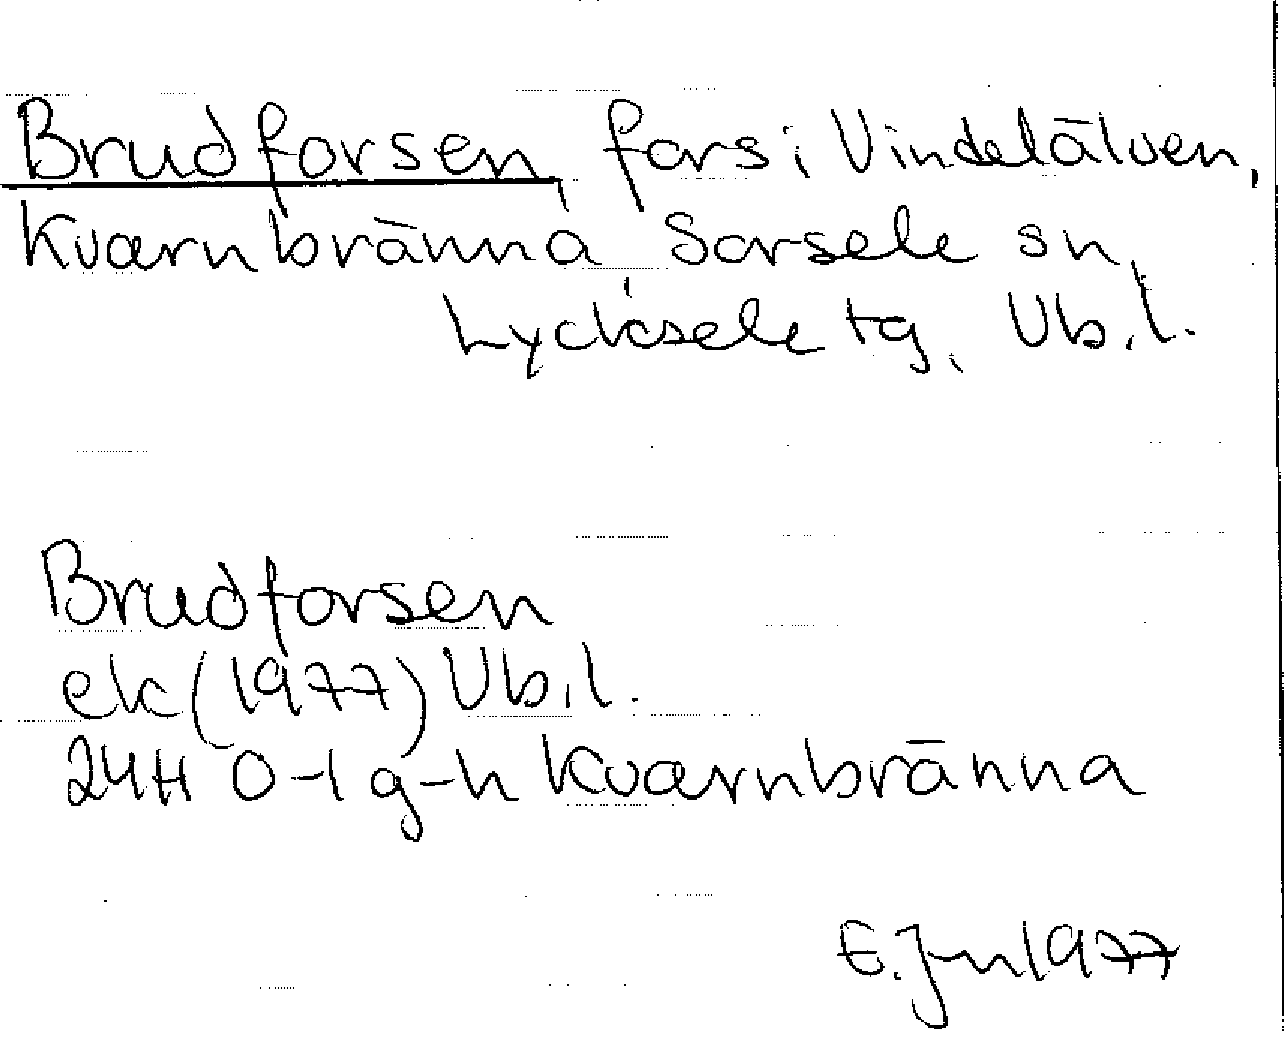 Brudforsen, fors i Vindelälven,
Kvarnbränna, Sorsele sn,
Lycksele tg, Vb.l.
Brudforsen
ek (1977) Vb.l.
24H 0-1 g-h Kvarnbränna
E. 1977